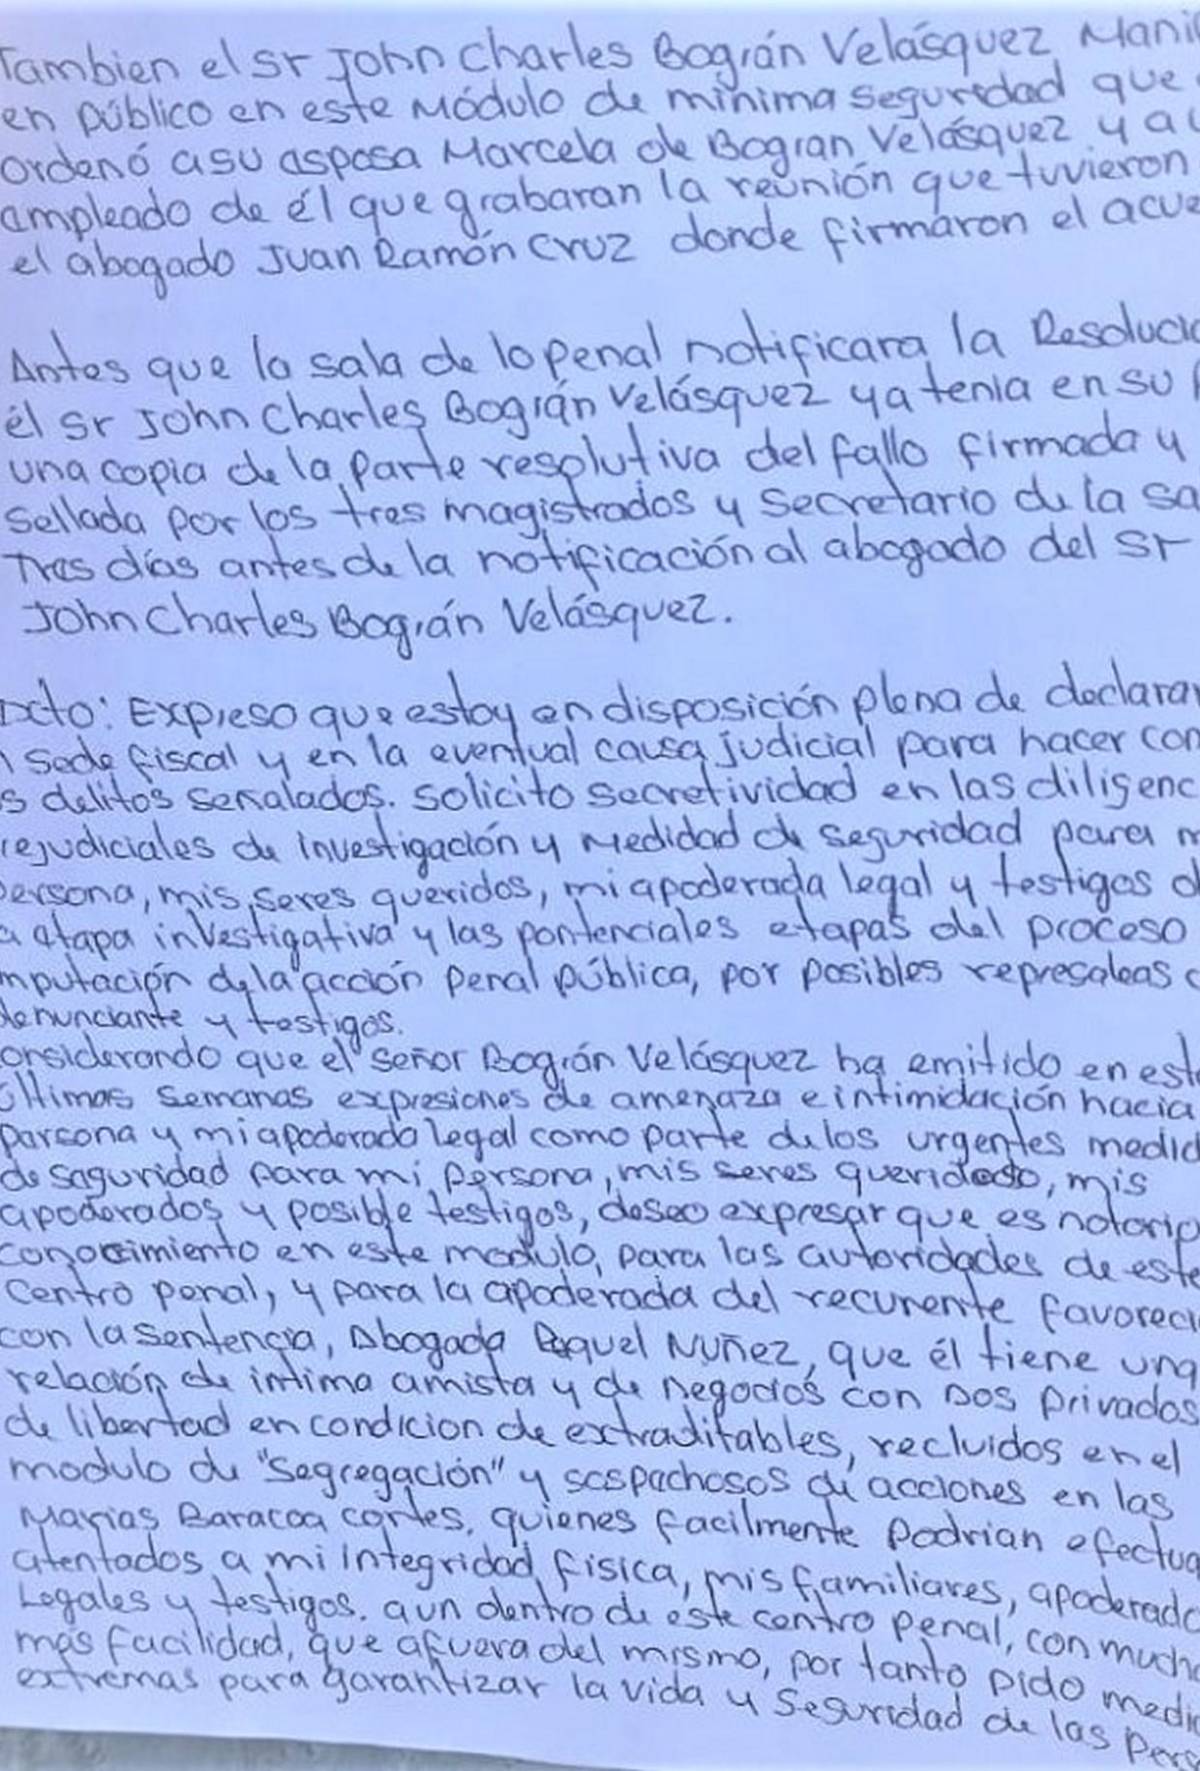 Tambien el sr John Charles Bográn Velásquez Mani
en público en este Módulo de mínima seguridad que
Ordenó a su asposa Marcela de Bogran Velásquez y a
ampleado de él que grabaran la reunión que tuvieron
el abogado Juan Ramón Cruz donde firmaron el acue
Antes que la sala de lo penal notificara la Resoluci
él Sr John Charles Bográn Velásquez ya tenia en su
una copia de la parte resolutiva del fallo firmada y
Sellada por los tres magistrados y Secretario de la sa
Tres días antes de la notificación al abogado del Sr
John Charles Bográn Velásquez.
Expreso que estoy en disposición plena de declarar
sede fiscal y en la eventual causa judicial para hacer con
s delitos señalados. solicito secretividad en las diligenc
rejudiciales de investigación y medidad de seguridad para m
ersona, mis seres queridos, mi apoderada legal y testigos d
a etapa investigativa y las pontenciales etapas del proceso
mputación de la acción penal pública, por posibles represaleas
denunciante y testigos.
onsiderando que el señor Bográn Velásquez ha emitido en est
últimas semanas expresiones de amenaza e intimidación hacia
parsona y mi apoderada legal como parte de los urgentes medid
de saguridad para mi persona, mis seres queridos, mis
apoderados y posible testigos, deseo expresar que es notorio
conocimiento en este modulo, para las autoridades de este
Centro penal, y para la apoderada del recurrente favoreci
con la sentencia, Abogada Raquel Nuñez, que él tiene una
relación de intima amista y de negocios con Dos privados
de libertad en condicion de extraditables, recluidos en el
modulo de "Segregación" y sospechosos de acciones en las
Marias Baracoa cortes, quienes facilmente podrian efectua
atentados a mi integridad física, mis familiares, apoderado
Legales y testigos. aun dentro de este centro penal, con much
más facilidad, que afuera del mismo, por tanto pido medi
extremas para garantizar la vida y seguridad de las pers